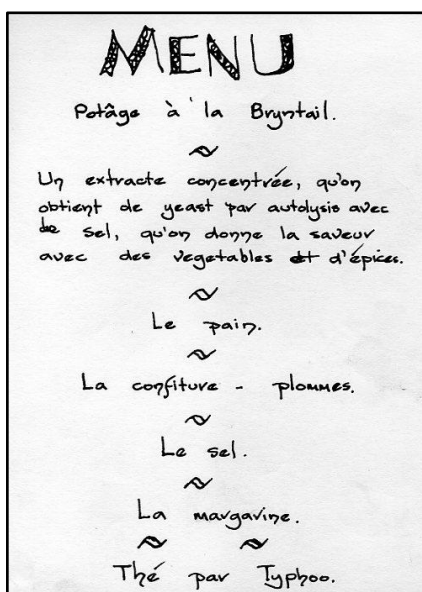 MENU
Potâge à la Bryntail.
~
Un extracte concentrée, qu'on
obtient de yeast par autolysis avec
de sel, qu'on donne la saveur
avec des vegetables et d'épices.
~
Le pain.
~
La confiture - plommes.
~
Le sel.
~
La margarine.
~ ~
Thé par Typhoo.